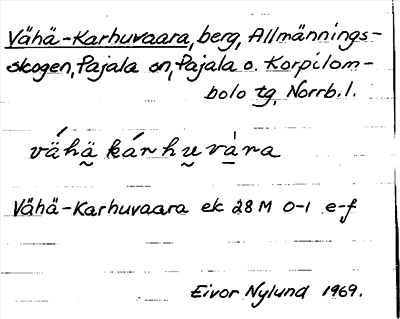 Vähä-Karhuvaara, berg, Allmännings-
skogen, Pajala sn, Pajala o. Korpilom-
bolo tg, Norrb. l.
vä́hä̰ kárhṵvà̱ra
Vähä-Karhuvaara ek 28 M 0-1 e-f
Eivor Nylund 1969.